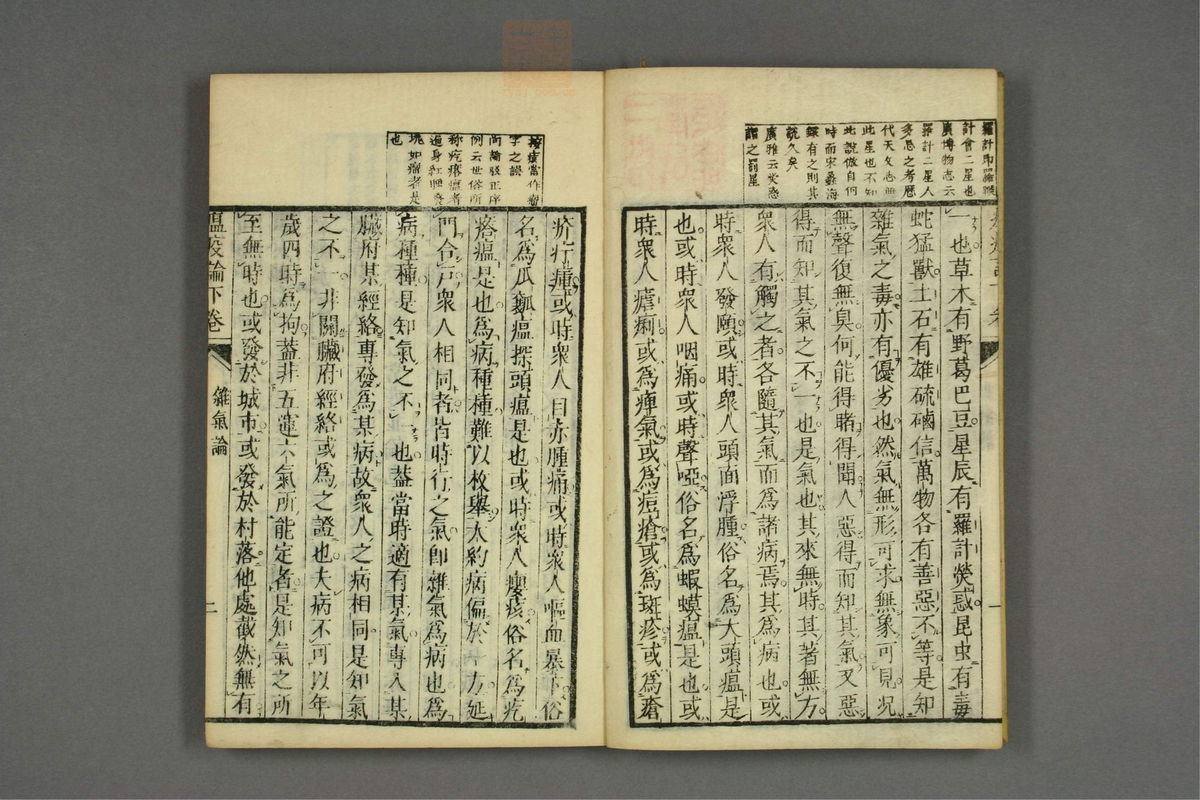 羅計即羅㬋
計都二星也
廣博物志云
羅計二星人
多忌之考歷
代天文志無
此星也不知
此說倣自何
時而宋彝海
錄有之則其
說久矣
廣雅云熒惑
謂之罰星
一也草木有野葛巴豆星辰有羅計熒惑昆虫有毒
蛇猛獸土石有雄硫硇信萬物各有善惡不等是知
雜氣之毒亦有優劣也然氣無形可求無象可見况
無聲復無臭何能得睹得聞人惡得而知其氣又惡
得而知其氣之不一也是氣也其來無時其著無方
衆人有觸之者各隨其氣而爲諸病焉其爲病也或
時衆人發頤或時衆人頭面浮腫俗名爲大頭瘟是
也或時衆人咽痛或時聲啞俗名爲蝦蟆瘟是也或
時衆人瘧痢或爲痺氣或爲痘瘡或爲斑疹或爲瘡
字之誤
例云世俗所
称疙瘩瘟者
遍身紅腫發
塊如瘤者是
也
疥疔瘇或時衆人目赤腫痛或時衆人嘔血暴下俗
名爲瓜瓤瘟探頭瘟是也或時衆人癭痎俗名爲疙
瘩瘟是也爲病種種難以枚舉大約病偏於一方延
門合戶衆人相同者皆時行之氣即雜氣爲病也爲
病種種是知氣之不一也蓋當時適有某氣專入某
臟府某經絡專發爲某病故衆人之病相同是知氣
之不一非關臟府經絡或爲之證也夫病不可以年
歲四時爲拘蓋非五運六氣所能定者是知氣之所
至無時也或發於城市或發於村落他處截然無有
瘟疫論下卷
雜氣論
二